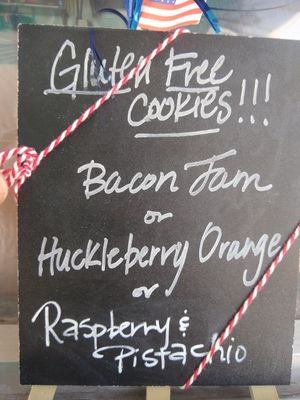 Gluten Free
Cookies!!!
Bacon Jam
or
Huckleberry Orange
or
Raspberry &
Pistachio